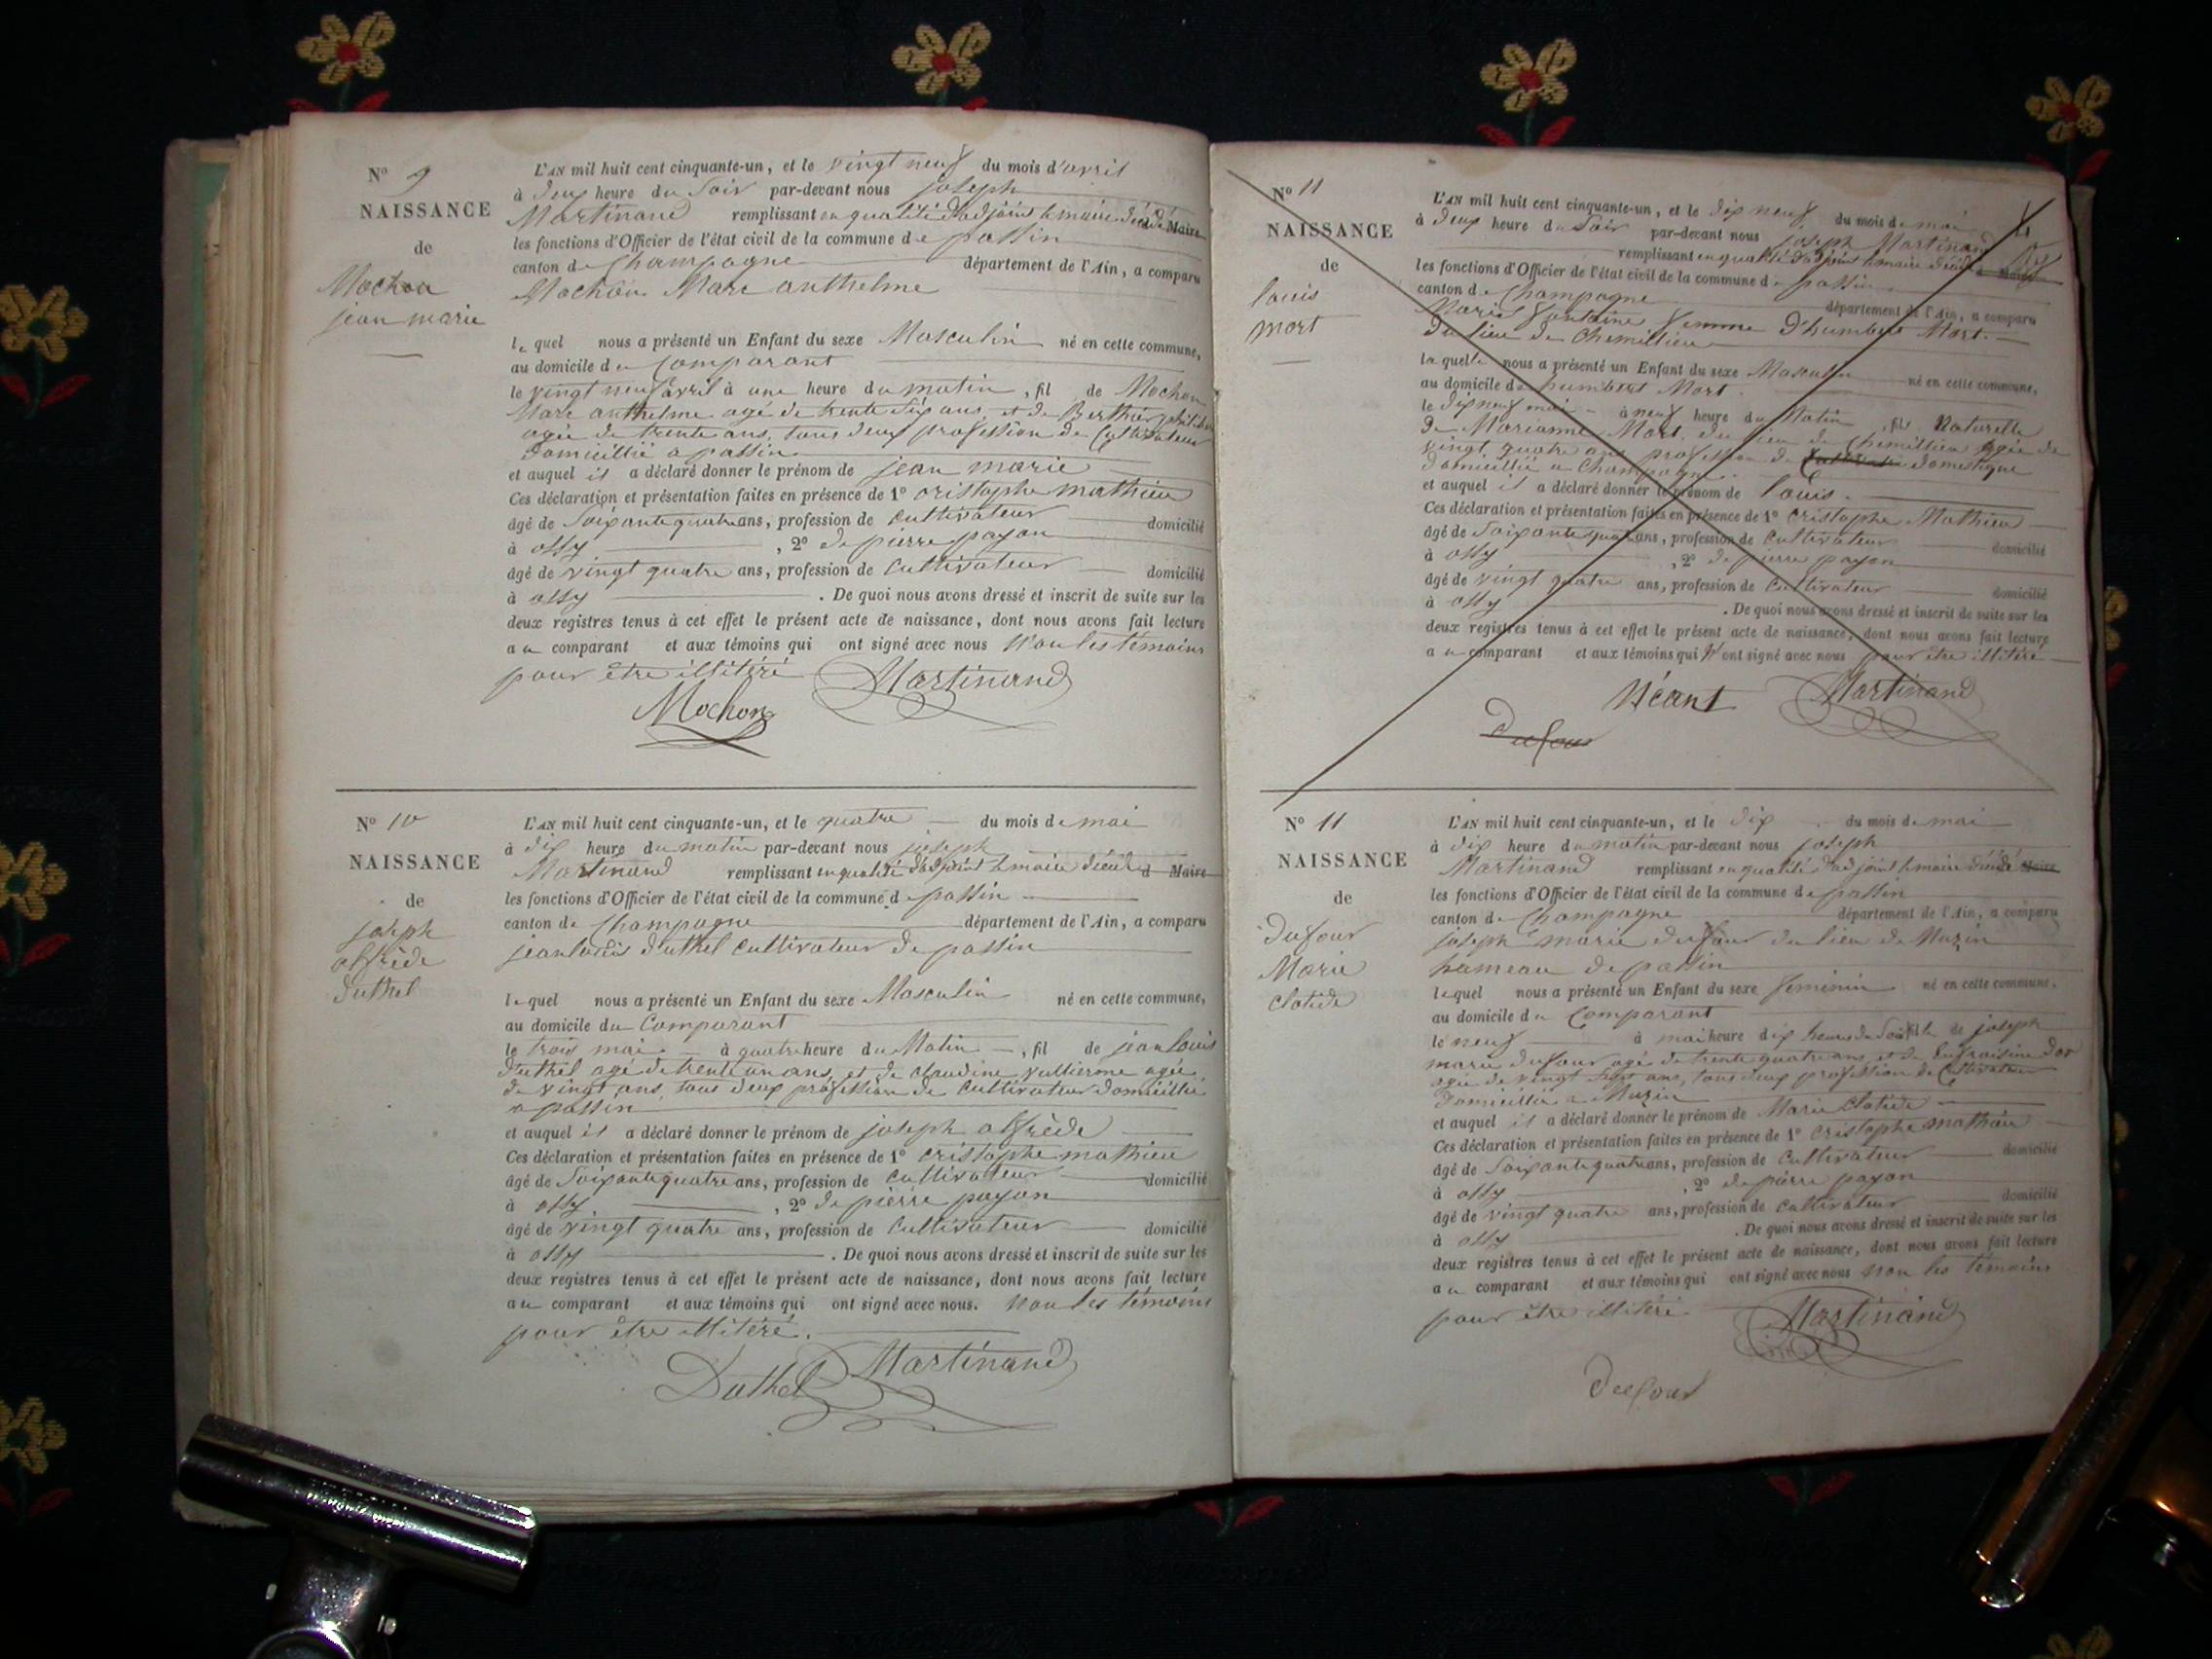 N° 9
NAISSANCE
de
Mochon
jean marie
L'AN mil huit cent cinquante-un, et le vingt neuf du mois d'avril
à deux heure du Soir par-devant nous joseph
Martinand remplissant en qualité d'adjoint le maire décédé Maire
les fonctions d'Officier de l'état civil de la commune de passin
canton de Champagne département de l'Ain, a comparu
Mochon Marc anthelme
le quel nous a présenté un Enfant du sexe Masculin né en cette commune,
au domicile du Comparant
le vingt neuf avril à une heure du matin, fil de Mochon
Marc anthelme agé de trente six ans, et de Berthier
agée de trente ans, tous deux profession de Cultivateur
domicillié a passin
et auquel il a déclaré donner le prénom de jean marie
Ces déclaration et présentation faites en présence de 1° cristophe mathieu
âgé de Soixante quatre ans, profession de cultivateur domicilié
à ossy , 2° de pierre payon
âgé de vingt quatre ans, profession de Cultivateur domicilié
à ossy . De quoi nous avons dressé et inscrit de suite sur les
deux registres tenus à cet effet le présent acte de naissance, dont nous avons fait lecture
au comparant et aux témoins qui ont signé avec nous Non les témoins
pour être illitéré Martinand
Mochon
N° 10
NAISSANCE
de
joseph
alfrède
duthel
L'AN mil huit cent cinquante-un, et le quatre du mois de mai
à dix heure du matin par-devant nous joseph
Martinand remplissant en qualité d'adjoint le maire décédé Maire
les fonctions d'Officier de l'état civil de la commune de passin
canton de Champagne département de l'Ain, a comparu
jean louis duthel cultivateur de passin
le quel nous a présenté un Enfant du sexe Masculin né en cette commune,
au domicile du Comparant
le trois mai à quatre heure du Matin, fil de jean louis
duthel agé de trente un ans, et de claudine Vullierme agée
de vingt ans, tous deux profession de Cultivateur domicillié
a passin
et auquel il a déclaré donner le prénom de joseph alfrède
Ces déclaration et présentation faites en présence de 1° cristophe mathieu
âgé de Soixante quatre ans, profession de cultivateur domicilié
à ossy , 2° de pierre payon
âgé de vingt quatre ans, profession de Cultivateur domicilié
à ossy . De quoi nous avons dressé et inscrit de suite sur les
deux registres tenus à cet effet le présent acte de naissance, dont nous avons fait lecture
au comparant et aux témoins qui ont signé avec nous. Non les témoins
pour être illitéré.
Duthel Martinand
N° 11
NAISSANCE
de
louis
mort
L'AN mil huit cent cinquante-un, et le dix neuf du mois de mai
à deux heure du Soir par-devant nous joseph Martinand
remplissant en qualité d'adjoint le maire décédé Maire
les fonctions d'Officier de l'état civil de la commune de passin
canton de Champagne département de l'Ain, a comparu
Marie fontaine femme d'humbert Mort
du lieu de Chemillieu
la quelle nous a présenté un Enfant du sexe Masculin né en cette commune,
au domicile de humbert Mort
le dix neuf mai à neuf heure du Matin, fil Naturelle
de Marianne Mort, du lieu de Chemillieu agée de
vingt quatre ans profession de domestique
domicillié a Champagne
et auquel il a déclaré donner le prénom de louis.
Ces déclaration et présentation faites en présence de 1° Cristophe Mathieu
âgé de Soixante quatre ans, profession de cultivateur domicilié
à ossy , 2° de pierre payon
âgé de vingt quatre ans, profession de Cultivateur domicilié
à ossy . De quoi nous avons dressé et inscrit de suite sur les
deux registres tenus à cet effet le présent acte de naissance, dont nous avons fait lecture
au comparant et aux témoins qui N'ont signé avec nous pour être illitéré
Néant Martinand
dufour
N° 11
NAISSANCE
de
dufour
Marie
clotide
L'AN mil huit cent cinquante-un, et le dix du mois de mai
à dix heure du matin par-devant nous joseph
Martinand remplissant en qualité d'adjoint le maire décédé Maire
les fonctions d'Officier de l'état civil de la commune de passin
canton de Champagne département de l'Ain, a comparu
joseph marie dufour du lieu de Muzin
hameau de passin
lequel nous a présenté un Enfant du sexe feminin né en cette commune,
au domicile du Comparant
le neuf à mai heure dix heures du Soir fille de joseph
marie dufour agé de trente quatre ans, et de
agée de vingt sept ans, tous deux profession de Cultivateur
domicillié a Muzin
et auquel il a déclaré donner le prénom de Marie Clotide
Ces déclaration et présentation faites en présence de 1° cristophe mathieu
âgé de Soixante quatre ans, profession de Cultivateur domicilié
à ossy , 2° de pierre payon
âgé de vingt quatre ans, profession de cultivateur domicilié
à ossy . De quoi nous avons dressé et inscrit de suite sur les
deux registres tenus à cet effet le présent acte de naissance, dont nous avons fait lecture
au comparant et aux témoins qui ont signé avec nous Non les témoins
pour être illitéré Martinand
dufour